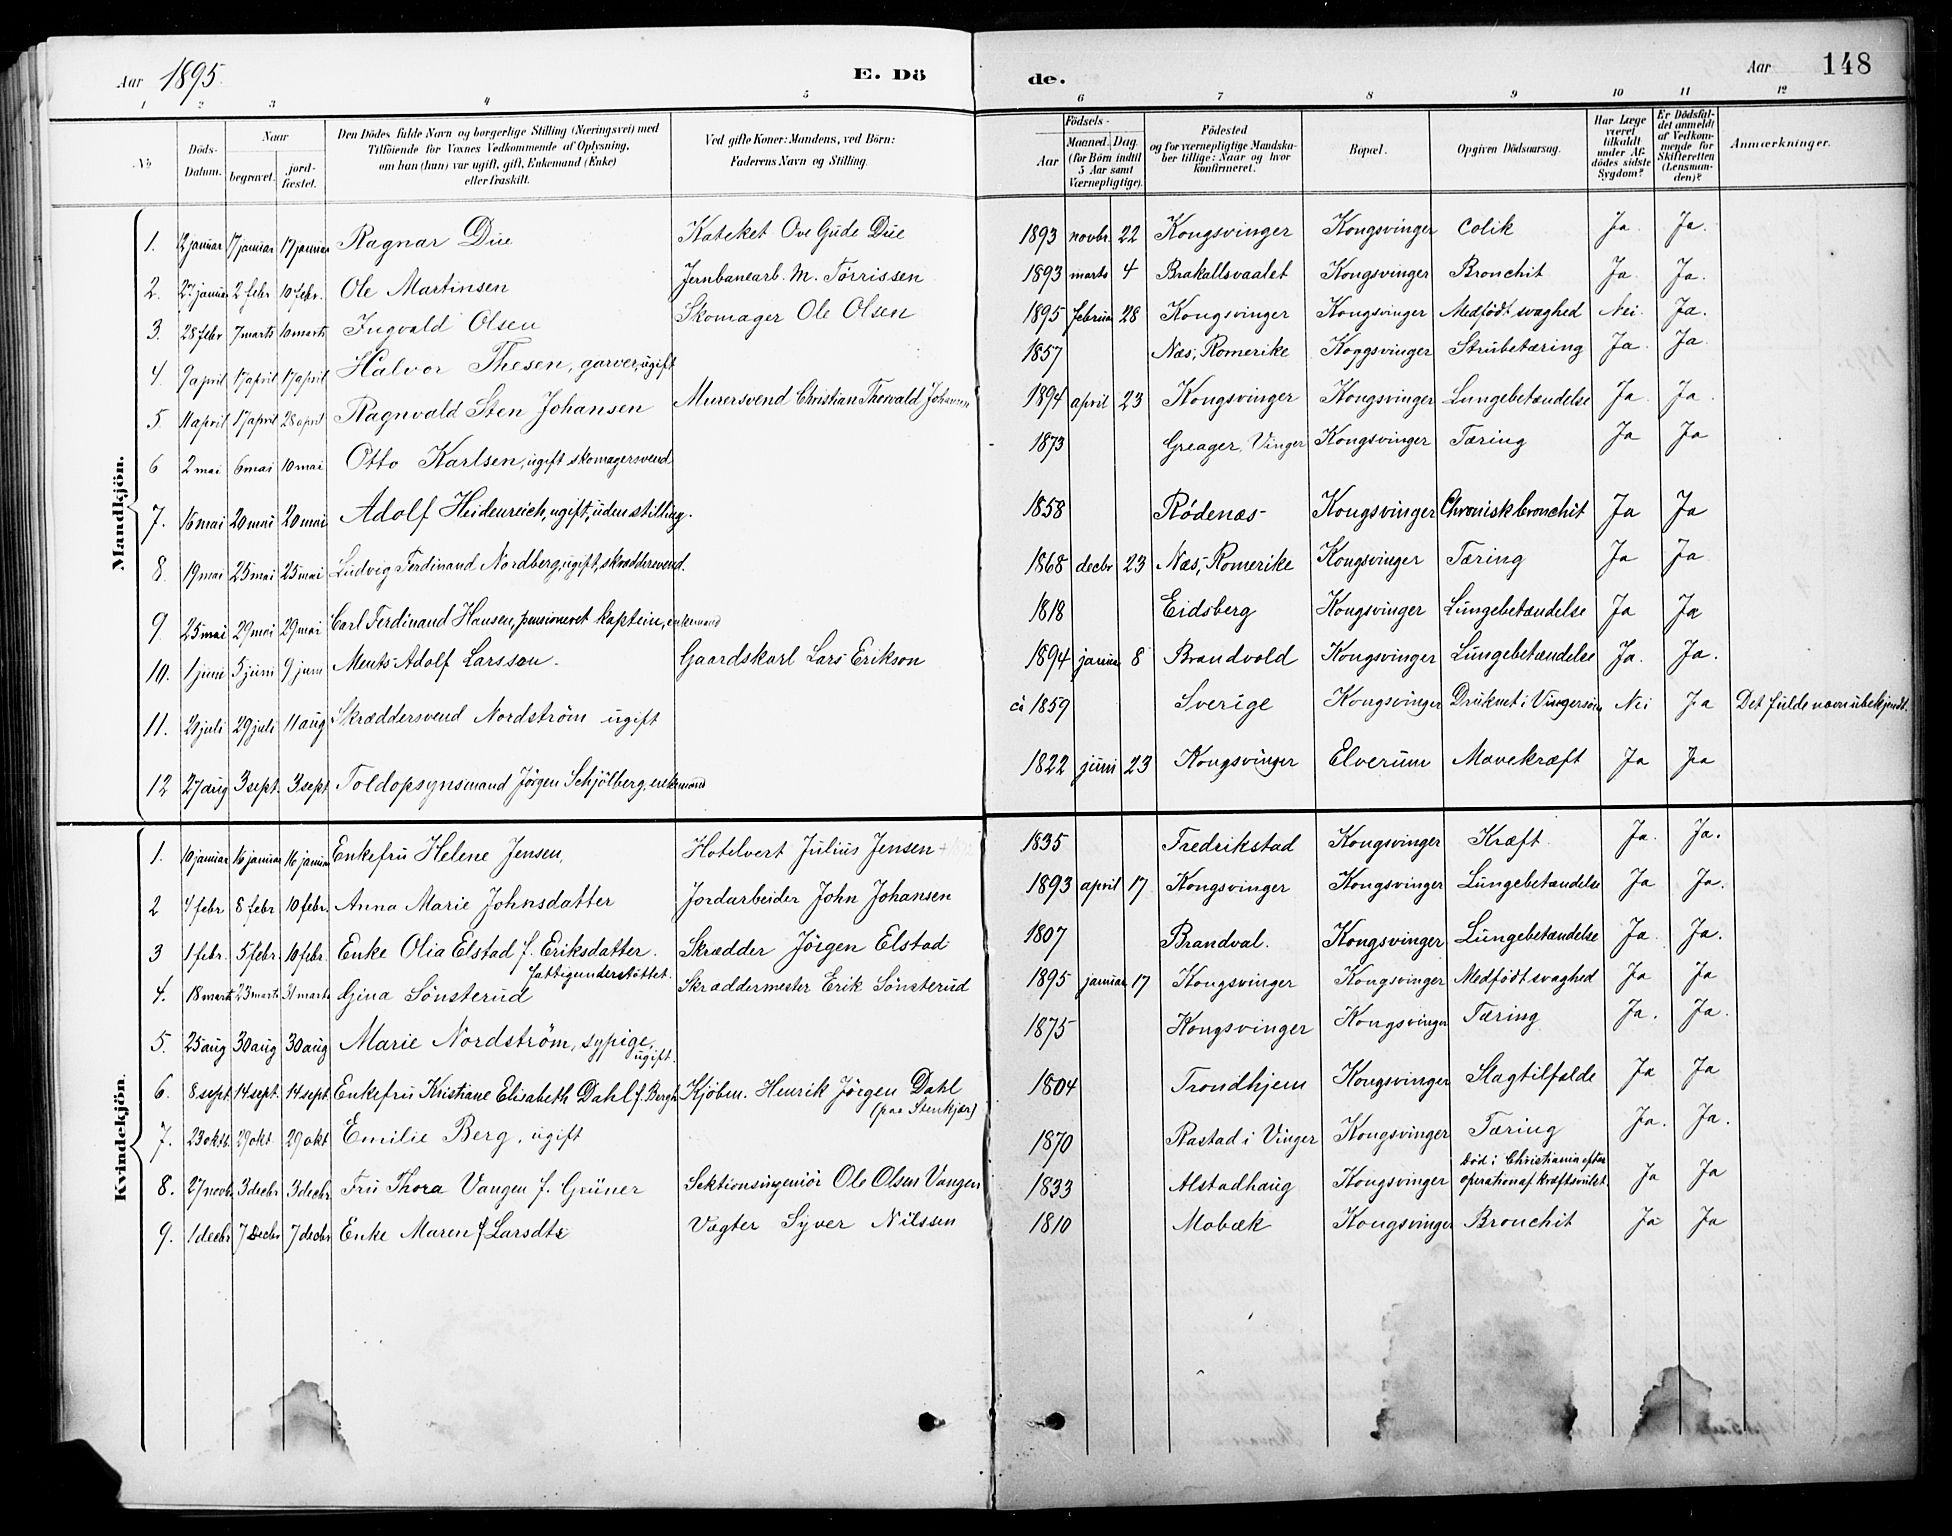 Aar 1895. E. Dö de. Aar 148
1 2 3 4 5 6 7 8 9 10 11 12
No
Döds-Datum.
Naar
begravet.
jord-fæstet.
Den Dödes fulde Navn og borgerlige Stilling (Næringsvei) med
Tilföiende for Voxnes Vedkommende af Oplysning,
om han (hun) var ugift, gift, Enkemand (Enke)
eller fraskilt.
Ved gifte Koner: Mandens, ved Börn:
Faderens Navn og Stilling.
Födsels-
Aar
Maaned. Dag.
(for Börn indtil
5 Aar samt
Værnepligtige).
Födested
og for værnepligtige Mandska-
ber tillige: Naar og hvor
konfirmeret.
Bopæl.
Opgiven Dödsaarsag.
Har Læge
været
tilkaldt
under Af-
dödes sidste
Sygdom?
Er Dödsfal-
det anmeldt
af Vedkom-
mende for
Skifteretten
(Lensman-
den)?
Anmærkninger.
Mandkjön.
1. 12 januar 17 januar 17 januar Ragnar Due Kateket Ove Gude Due 1893 novbr. 22 Kongsvinger Kongsvinger Colik Ja. Ja.
2. 27 januar 2 febr 10 febr. Ole Martinsen Jernbanearb. M. Tørrissen 1893 marts 4 Brakallsvaalet Kongsvinger Bronchit Ja. Ja.
3. 28 febr 7 marts 10 marts Ingvald Olsen Skomager Ole Olsen 1895 februar 28 Kongsvinger Kongsvinger Medfödt svaghed Nei. Ja.
4. 9 april 17 april 17 april Halvor Thesen, garver, ugift 1857 Næs, Romerike Koggsvinger Strubetæring Ja. Ja.
5 11 april 17 april 28 april Ragnvald Sten Johansen Murersvend Christian Thorvald Johansen 1894 april 23 Kongsvinger Kongsvinger Lungebetændelse Ja. Ja.
6 2 mai 6 mai 10 mai Otto Karlsen, ugift skomagersvend 1873 Greager, Vinger Kongsvinger Tæring Ja Ja
7. 16 mai 20 mai 20 mai Adolf Heidenreich, ugift, uden stilling. 1858 Rødenæs- Kongsvinger Chronisk bronchit Ja Ja
8. 19 mai 25 mai 25 mai Ludvig Ferdinand Nordberg, ugift, skræddersvend. 1868 decbr 23 Næs, Romerike Kongsvinger Tæring Ja Ja
9. 25 mai 29 mai 29 mai Carl Ferdinand Hansen, pensioneret kaptein, enkemand 1818 Eidsberg Kongsvinger Lungebetændelse Ja Ja
10. 1 juni 5 juni 9 juni Ments Adolf Larsson. Gaardskarl Lars Erikson 1894 januar 8 Brandvold Kongsvinger Lungebetændelse Ja. Ja.
11. 21 juli 29 juli 11 aug Skræddersvend Nordström ugift ci 1859 Sverige Kongsvinger Druknet i Vingersöen Nei Ja Det fulde navn ubekjendt.
12 27 aug 3 sept. 3 sept Toldopsynsmand Jörgen Schjölberg, enkemand 1822 juni 23 Kongsvinger Elverum Mavekræft Ja Ja
Kvindekjön.
1. 10 januar 16 januar 16 januar Enkefru Helene Jensen, Hotelvert Julius Jensen 1835 Fredrikstad Kongsvinger Kræft Ja. Ja.
2 4 febr 8 febr 10 febr. Anna Marie Johnsdatter Jordarbeider John Johansen 1893 april 17. Kongsvinger Kongsvinger Lungebetændelse Ja Ja.
3 1 febr. 5 febr. 10 febr. Enke Olia Elstad f. Eriksdatter. Skrædder Jörgen Elstad 1807 Brandval. Kongsvinger Lungebetændelse Ja. Ja.
fattigunderstöttet.
4. 18 marts 23 marts 31 marts Gina Sönsterud Skræddermester Erik Sönsterud 1895 januar 17 Kongsvinger Kongsvinger Medfödt svaghed Ja Ja
5. 25 aug 30 aug 30 aug Marie Nordström, sypige, 1875 Kongsvinger Kongsvinger Tæring Ja. Ja.
ugift.
6. 8 sept. 14 sept. 14 sept. Enkefru Kristiane Elisabeth Dahl f. Bergh Kjöbm. Henrik Jörgen Dahl 1804 Trondhjem Kongsvinger Slagtilfælde Ja Ja
(paa Stenkjær)
7. 23 oktb. 29 okt. 29 okt Emilie Berg, ugift 1870 Rastad i Vinger Kongsvinger Tæring Ja. Ja.
8. 27 novb. 3 decbr 3 decbr. Fru Thora Vangen f. Grüner Sektionsingeniör Ole Olsen Vangen 1833 Alstadhaug Kongsvinger död i Christiania efter Ja Ja
operation af kræftsvulst.
9. 1 decbr 7 decbr 7 decbr Enke Maren f Larsdtr Vægter Syver Nilssen 1810 Mobæk Kongsvinger Bronchit Ja Ja